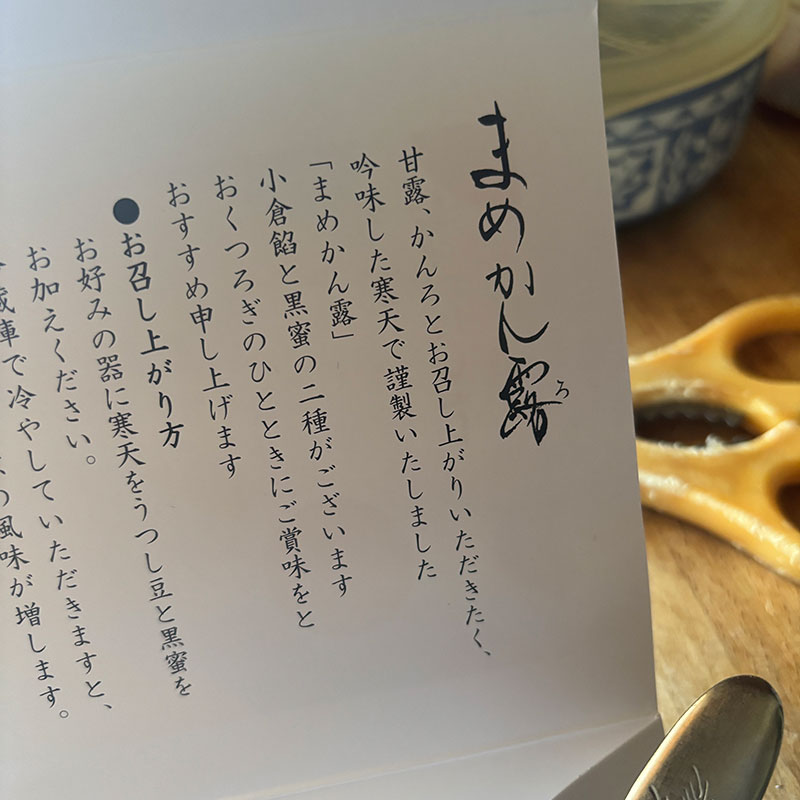 まめかん露
ろ
甘露、かんろとお召し上がりいただきたく、
吟味した寒天で謹製いたしました
「まめかん露」
小倉餡と黒蜜の二種がございます
おくつろぎのひとときにご賞味をと
おすすめ申し上げます
●お召し上がり方
お好みの器に寒天をうつし豆と黒蜜を
お加えください。
蔵庫で冷やしていただきますと、
の風味が増します。